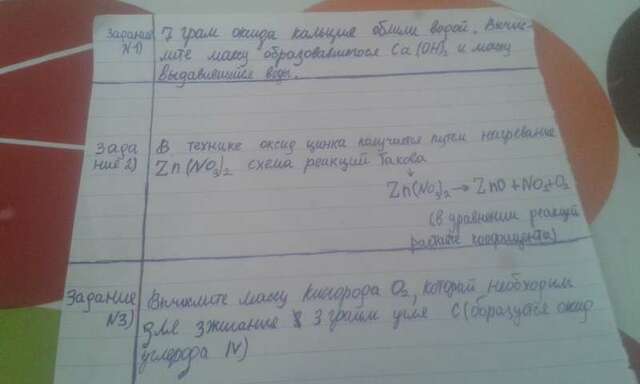 Задание
N1)
7 грам оксида кальция облили водой. Вычис-
лите массу образовавшегося Ca(OH)₂ и массу
выдавившийся воды.
Зада
ние 2)
В технике оксид цинка получается путем нагревание
Zn(NO₃)₂ схема реакций такова
↓
Zn(NO₃)₂ → ZnO + NO₂ + O₂
(в уравнении реакций
коэфицента)
Задание
N3)
Вычислите массу кислорода O₂, который необходим
для зжигание 3 грамм угля C (образуется оксид
углерода IV)